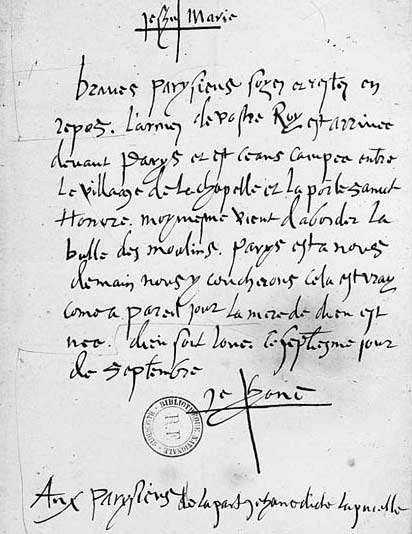 Jesus Marie
braves parysiens soyez et restez en
repos. L'armee de vostre Roy est arrivee
devant Parys et est ceans campee entre
Le village de la chapelle et la porte sainct
Honore. moy mesme vient d'aborder La
butte des moulins. Parys est a nous
demain nous y coucherons cela est vray
come a pareil jour La mere de dieu est
nee. dieu soit loue. ce septiesme jour
de Septembre
Jehane
BIBLIOTHEQUE NATIONALE
R.F.
Aux parysiens de la part Jehane dicte la pucelle